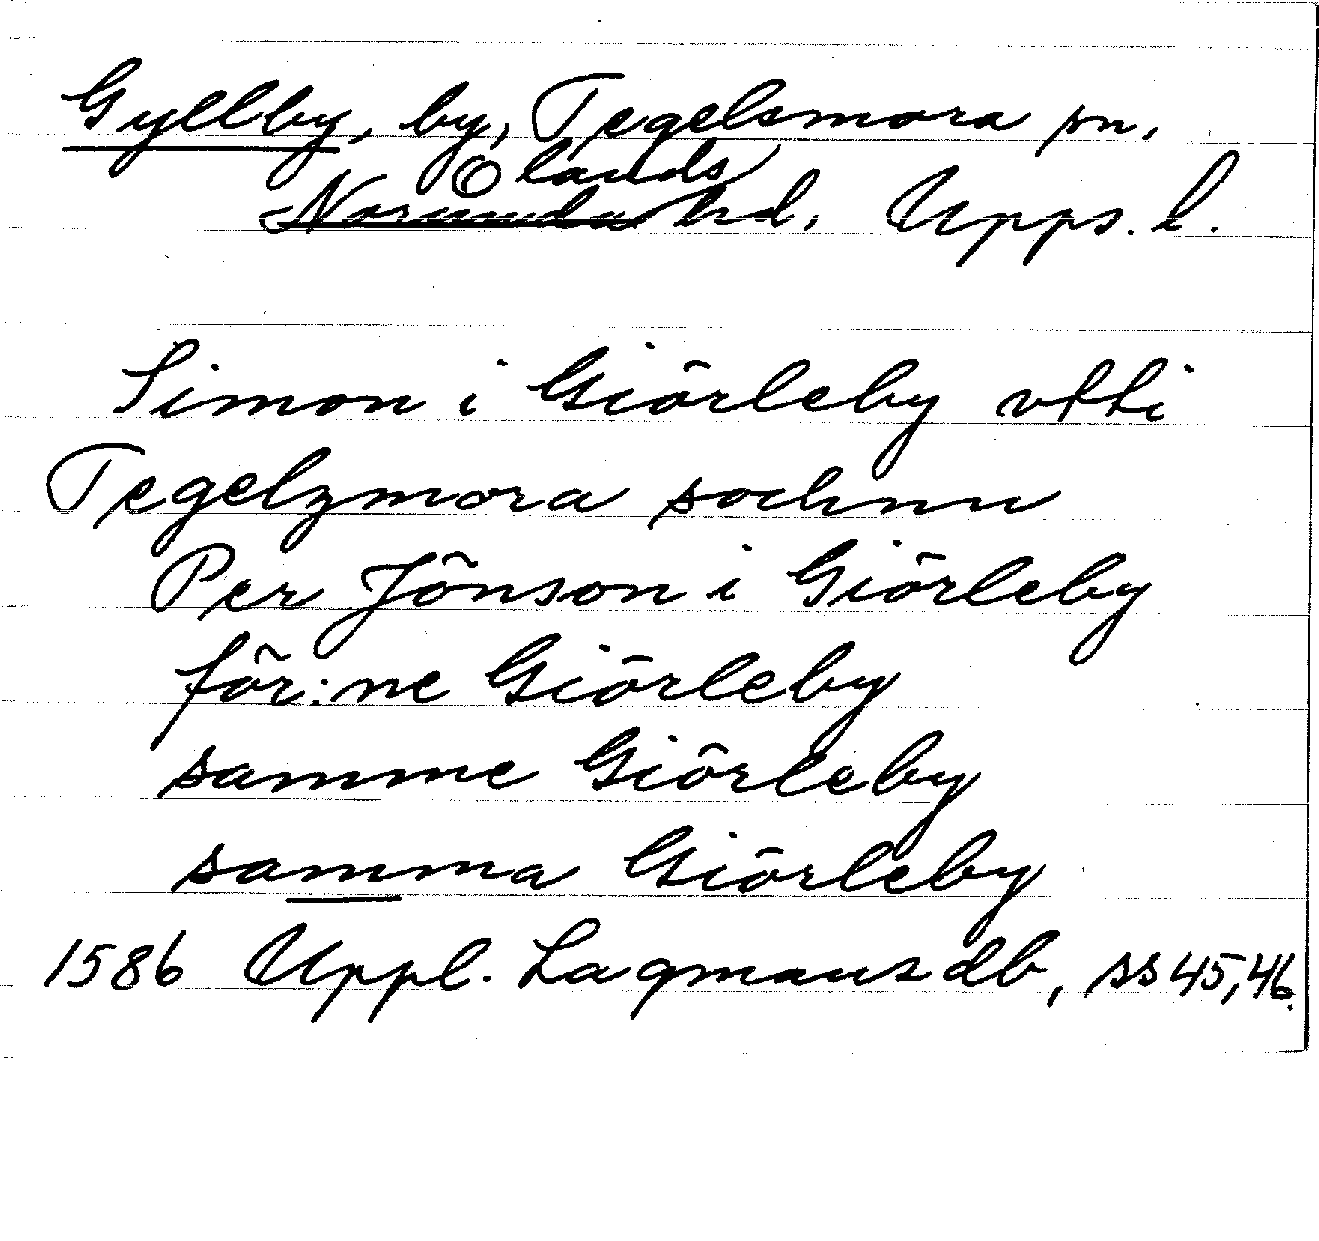 Gyllby, by, Tegelsmora sn,
Olands
Norunda hd, Upps. l.
Simon i Giörleby vtti
Tegelzmora sochnn
Per Jönson i Giörleby
för:ne Giörleby
samme Giörleby
samma Giörleby
1586 Uppl. Lagmansdb, ss 45,46.